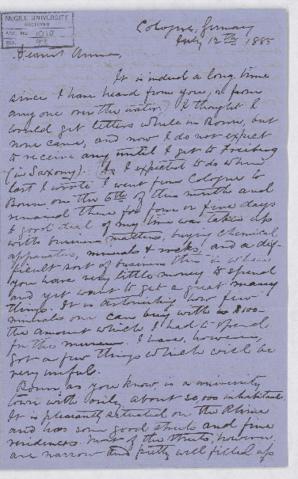 McGILL UNIVERSITY
ARCHIVES
ACC. NO. 1010
REF.
Cologne, Germany
July 12th 1885
Dearest Anna,
It is indeed a long time
since I have heard from you, or from
any one over the water. I thought I
would get letters while in Bonn, but
none came, and now I do not expect
to receive any until I get to Freiberg
(in Saxony). As I expected to do when
last I wrote I went from Cologne to
Bonn on the 6th of this month and
remained there for four or five days
A good deal of my time was taken up
with business matters, buying chemical
apparatus, minerals & rocks, and a dif-
ficult sort of business this is when
you have very little money to spend
and yet want to get a great many
things. It is astonishing how few
minerals one can buy with $100
the amount which I had to spend
for the museum. I have, however,
got a few things which will be
very useful.
Bonn as you know, is a university
town with only about 30,000 inhabitants.
It is pleasantly situated on the Rhine
and has some good streets and fine
residences. Most of the streets, however,
are narrow and pretty well filled up